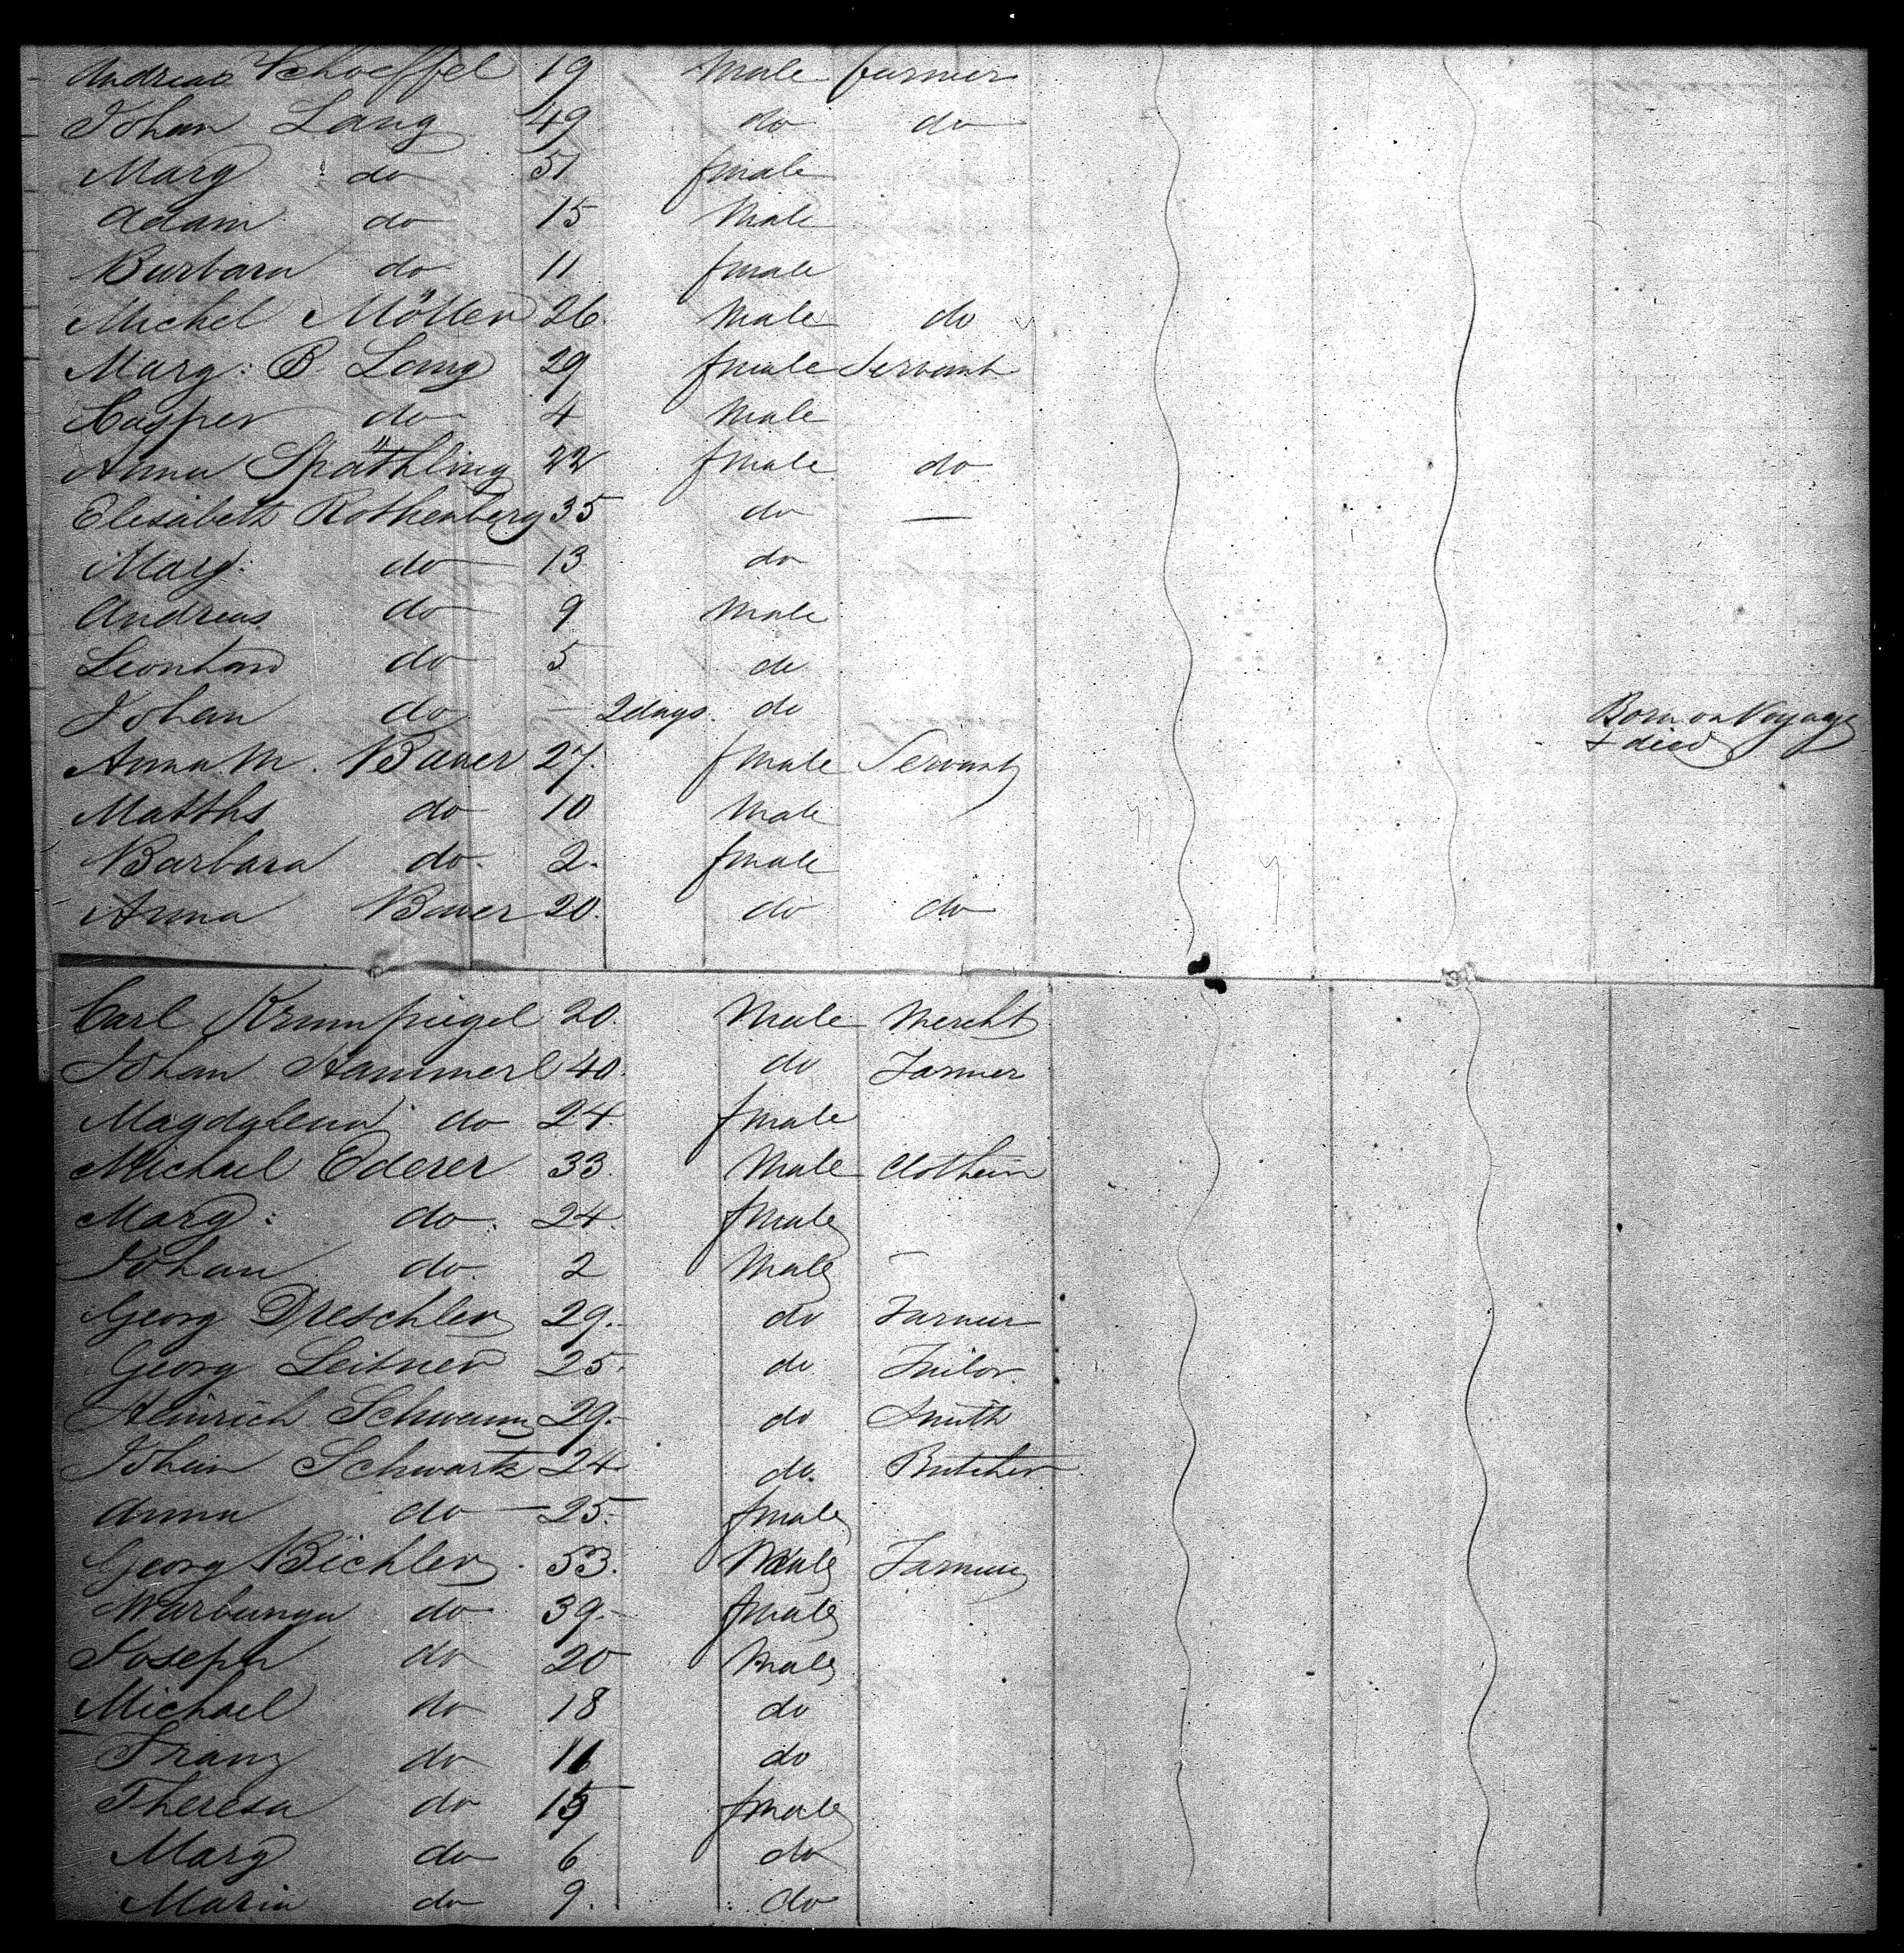 Andreas Schoeffel 19 Male farmer
Johan Lang 49 do do
Marg do 51 female
Adam do 15 Male
Barbara do 11 female
Michel Möller 26 Male do
Marg: B Lang 29 female Servant
Casper do 4 Male
Anna Späthling 22 female do
Elisabeth Rothenberg 35 do —
Marg: do 13 do
Andreas do 9 Male
Leonhard do 5 do
Johan do — 2 days. do Born on Voyage
& died
Anna M. Bauer 27. female Servant
Matths do 10 Male
Barbara do. 2. female
Anna Bauer 20. do do
Carl 20. Male Mercht
Johan Hammerl 40. do Farmer
Magdalena do 24. female
Michael Ederer 33. Male
Marg: do. 24. female
Johan do. 2 Male —
Georg Dreschler 29. do Farmer
Georg Leitner 25. do. Tailor.
Heinrich 29. do Smith
Johan Schwartz 24. do. Butcher
Anna do 25. female
Georg Bichler 53. Male Farmer
do 39. female
Joseph do 20 Male
Michael do 18 do
Franz do do
Theresa do female
Marg do 6 do
Maria do 9. do